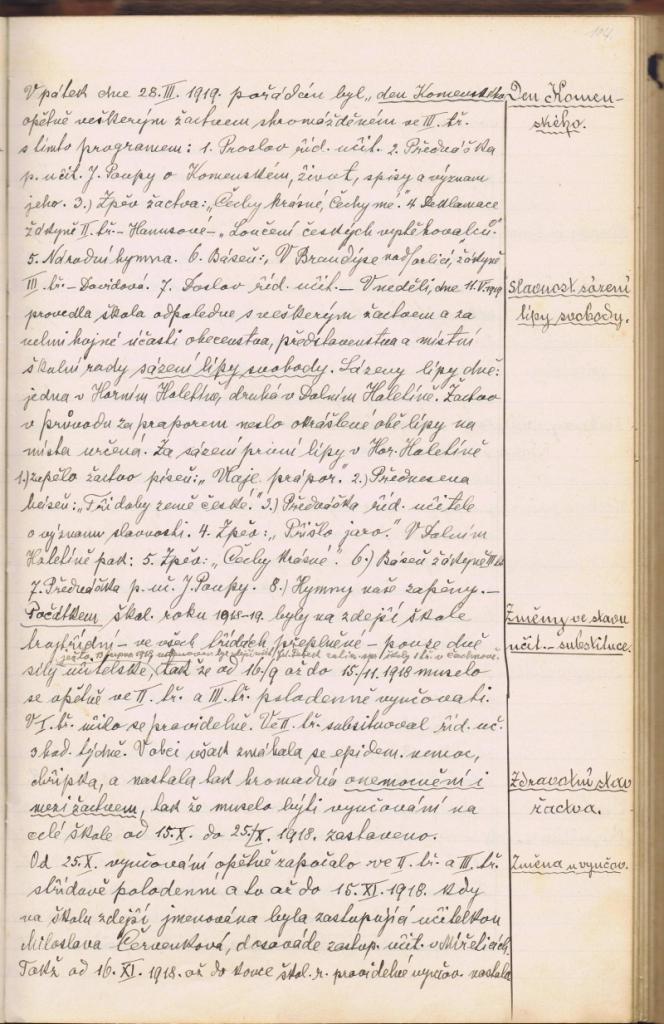 104.
V pátek dne 28. III. 1919. pořádán byl „den Komenského Den Komen-
opětně veškerým žactvem shromážděném ve III. tř. ského.
s tímto programem: 1. Proslov říd. učit. 2. Přednáška
p. učit. J. Poupy o Komenském, život, spisy a význam
jeho. 3.) Zpěv žactva: „Čechy krásné, Čechy mé." 4 Deklamace
žákyně II. tř. – Hanusové – „Loučení českých vystěhovalců."
5. Národní hymna. 6. Báseň: „V Brandýse nad Orlicí," žákyně
III. tř. – Davidová. 7. Doslov říd. učit. – V neděli, dne 11. V. 1919 Slavnost sázení
provedla škola odpoledne s veškerým žactvem a za lípy svobody.
velmi hojné účasti obecenstva, představenstva a místní
školní rady sázení lípy svobody. Sázeny lípy dvě:
jedna v Horním Holetíně, druhá v Dolním Holetíně. Žactvo
v průvodu za praporem neslo okrášlené obě lípy na
místa určená. Za sázení první lípy v Hor. Holetíně
1.) zapělo žactvo píseň: „Haje. prápor." 2.) Přednesena
báseň: „Tři doby země české." 3.) Přednáška říd. učitele
o významu slavnosti. 4. Zpěv: „Přišlo jaro." V Dolním
Holetíně pak: 5. Zpěv: „Čechy krásné". 6.) Báseň žákyně III tř.
7. Přednáška p. uč. J. Poupy. 8.) Hymny naše zapěny. –
Počátkem škol. roku 1918-19. byly na zdejší škole Změny ve stavu
trojtřídní – ve všech třídách přeplněné – pouze dvě učit. – substituce.
síly učitelské, tak že od 16./9 až do 15./11 1918 muselo
se opětně ve II. tř. a III. tř. polodenně vyučovati.
V I. tř. učilo se pravidelně. Ve II. tř. subsituoval říd. uč.
3 hod. týdně. V obci však zmáhala se epidem. nemoc,
chřipka, a nastala tak hromadná onemocnění i Zdravotní stav
mezi žactvem, tak že muselo býti vyučování na žactva.
celé škole od 15. X. do 25./X. 1918. zastaveno.
Od 25. X. vyučování opětně započalo ve II. tř. a III. tř. Změna u vyučov.
střídavě polodenní a to až do 15. XI. 1918. kdy
na školu zdejší jmenována byla zastupující učitelkou
Miloslava Červenková, dosavade zastup. učit. v Miřeticích.
Takž od 16. XI. 1918. až do konce škol. r. pravidelné vyučov. nastalo